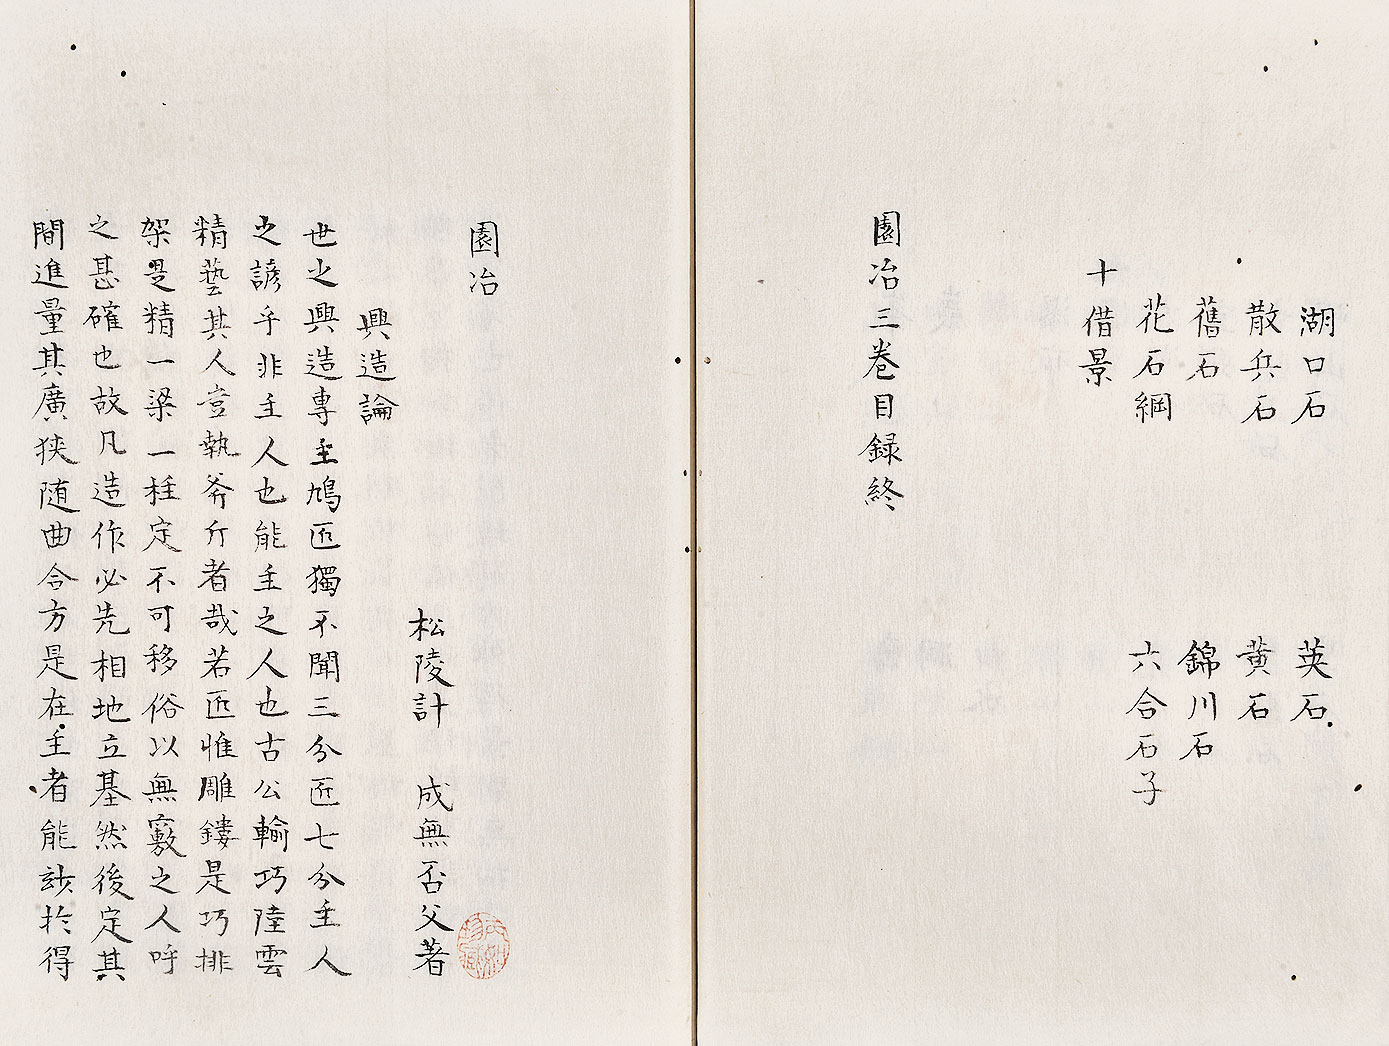 湖口石　英石
散兵石　黄石
舊石　錦川石
花石綱　六合石子
十借景
園冶三卷目録終
園冶
松陵計　成無否父著
興造論
世之興造專主鳩匠獨不聞三分匠七分主人
之諺乎非主人也能主之人也古公輸巧陸雲
精藝其人豈執斧斤者哉若匠惟雕鏤是巧排
架是精一梁一柱定不可移俗以無竅之人呼
之甚確也故凡造作必先相地立基然後定其
間進量其廣狭随曲合方是在主者能玅於得